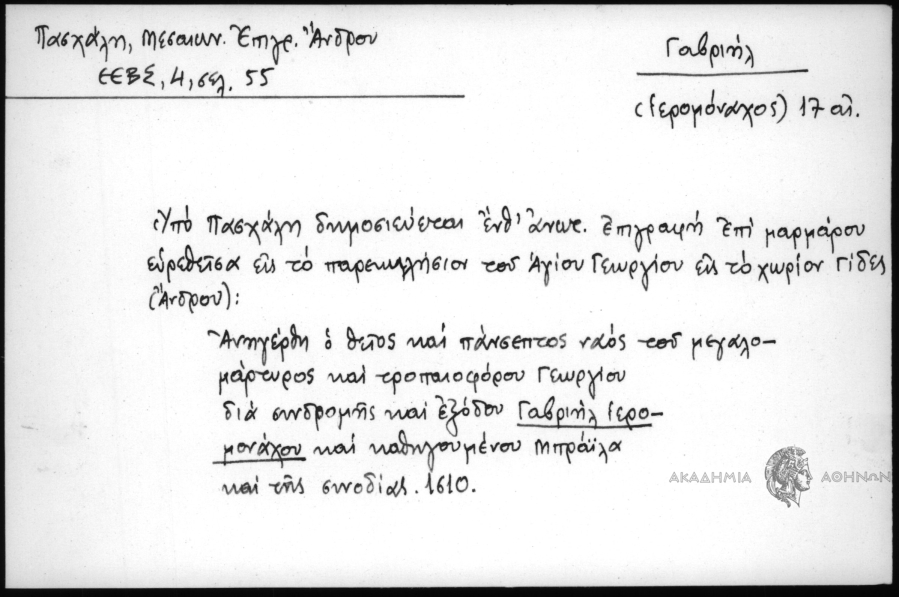 Πασχάλη, Μεσαιων. Ἐπιγρ. Ἄνδρου
ΕΕΒΣ, 4, σελ. 55
Γαβριήλ
(ἱερομόναχος) 17 αἰ.
Ὑπό Πασχάλη δημοσιεύεται ἔνθ' ἄνωτ. Ἐπιγραφή ἐπί μαρμάρου
εὑρεθεῖσα εἰς τό παρεκκλήσιον τοῦ Ἁγίου Γεωργίου εἰς τό χωρίον Γίδες
(Ἄνδρου):
Ἀνηγέρθη ὁ θεῖος καί πάνσεπτος ναός τοῦ μεγαλο-
μάρτυρος καί τροπαιοφόρου Γεωργίου
διά συνδρομῆς καί ἐξόδου Γαβριήλ ἱερο-
μονάχου καί καθηγουμένου Μπράϊλα
καί τῆς συνοδίας. 1610.
ΑΚΑΔΗΜΙΑ ΑΘΗΝΩΝ